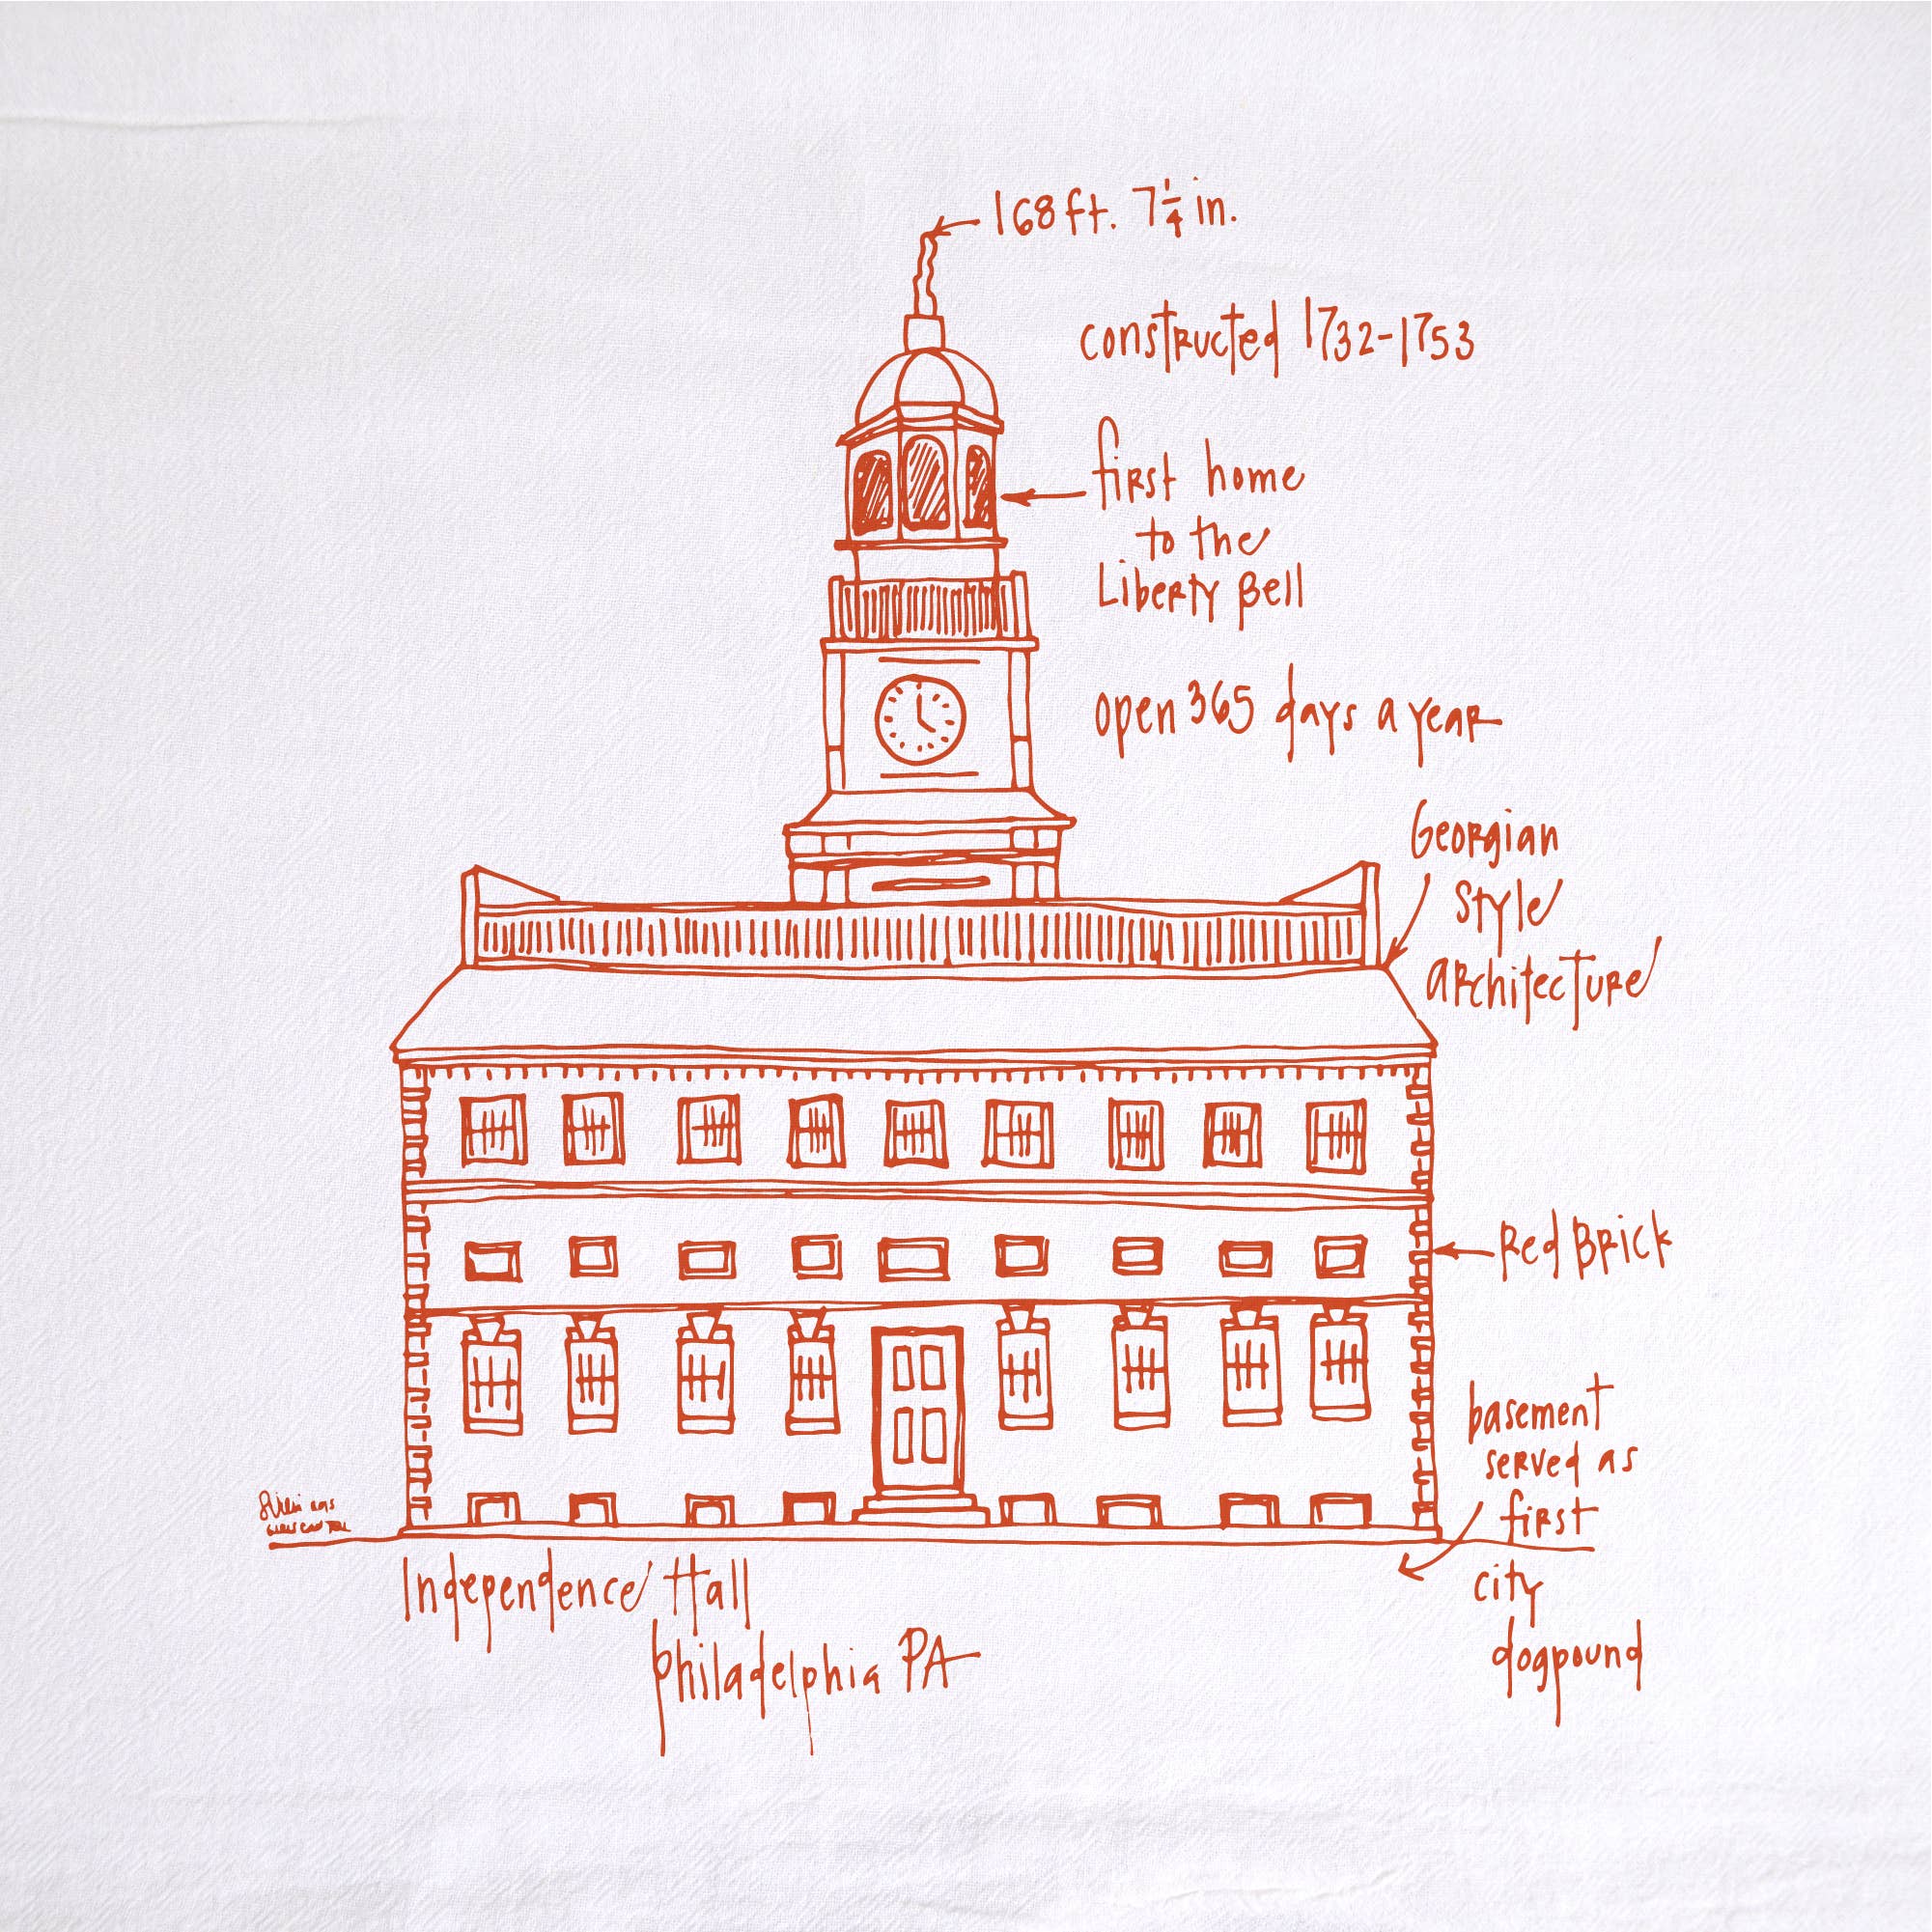 168 ft. 7 1/4 in.
constructed 1732-1753
first home
to the
Liberty Bell
open 365 days a year
Georgian
Style
architecture
Red Brick
basement
served as
first
city
dogpound
Independence Hall
philadelphia PA